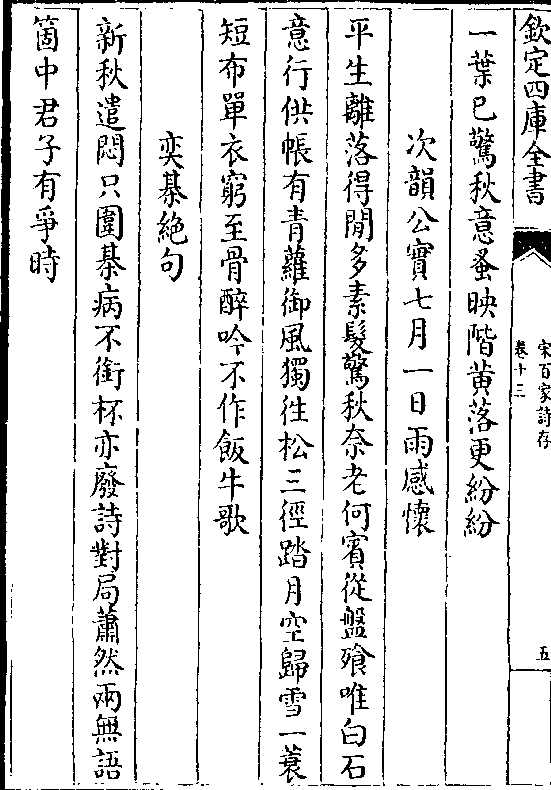 欽定四庫全書
宋百家詩存
卷十三
五
一葉已驚秋意蚤映階黄落更紛紛
次韻公實七月一日雨感懷
平生離落得閒多素髮驚秋奈老何賓從盤飱唯白石
意行供帳有青蘿御風獨徃松三徑踏月空歸雪一蓑
短布單衣窮至骨醉吟不作飯牛歌
奕棊絶句
新秋遣悶只圍棊病不銜杯亦廢詩對局蕭然兩無語
箇中君子有爭時